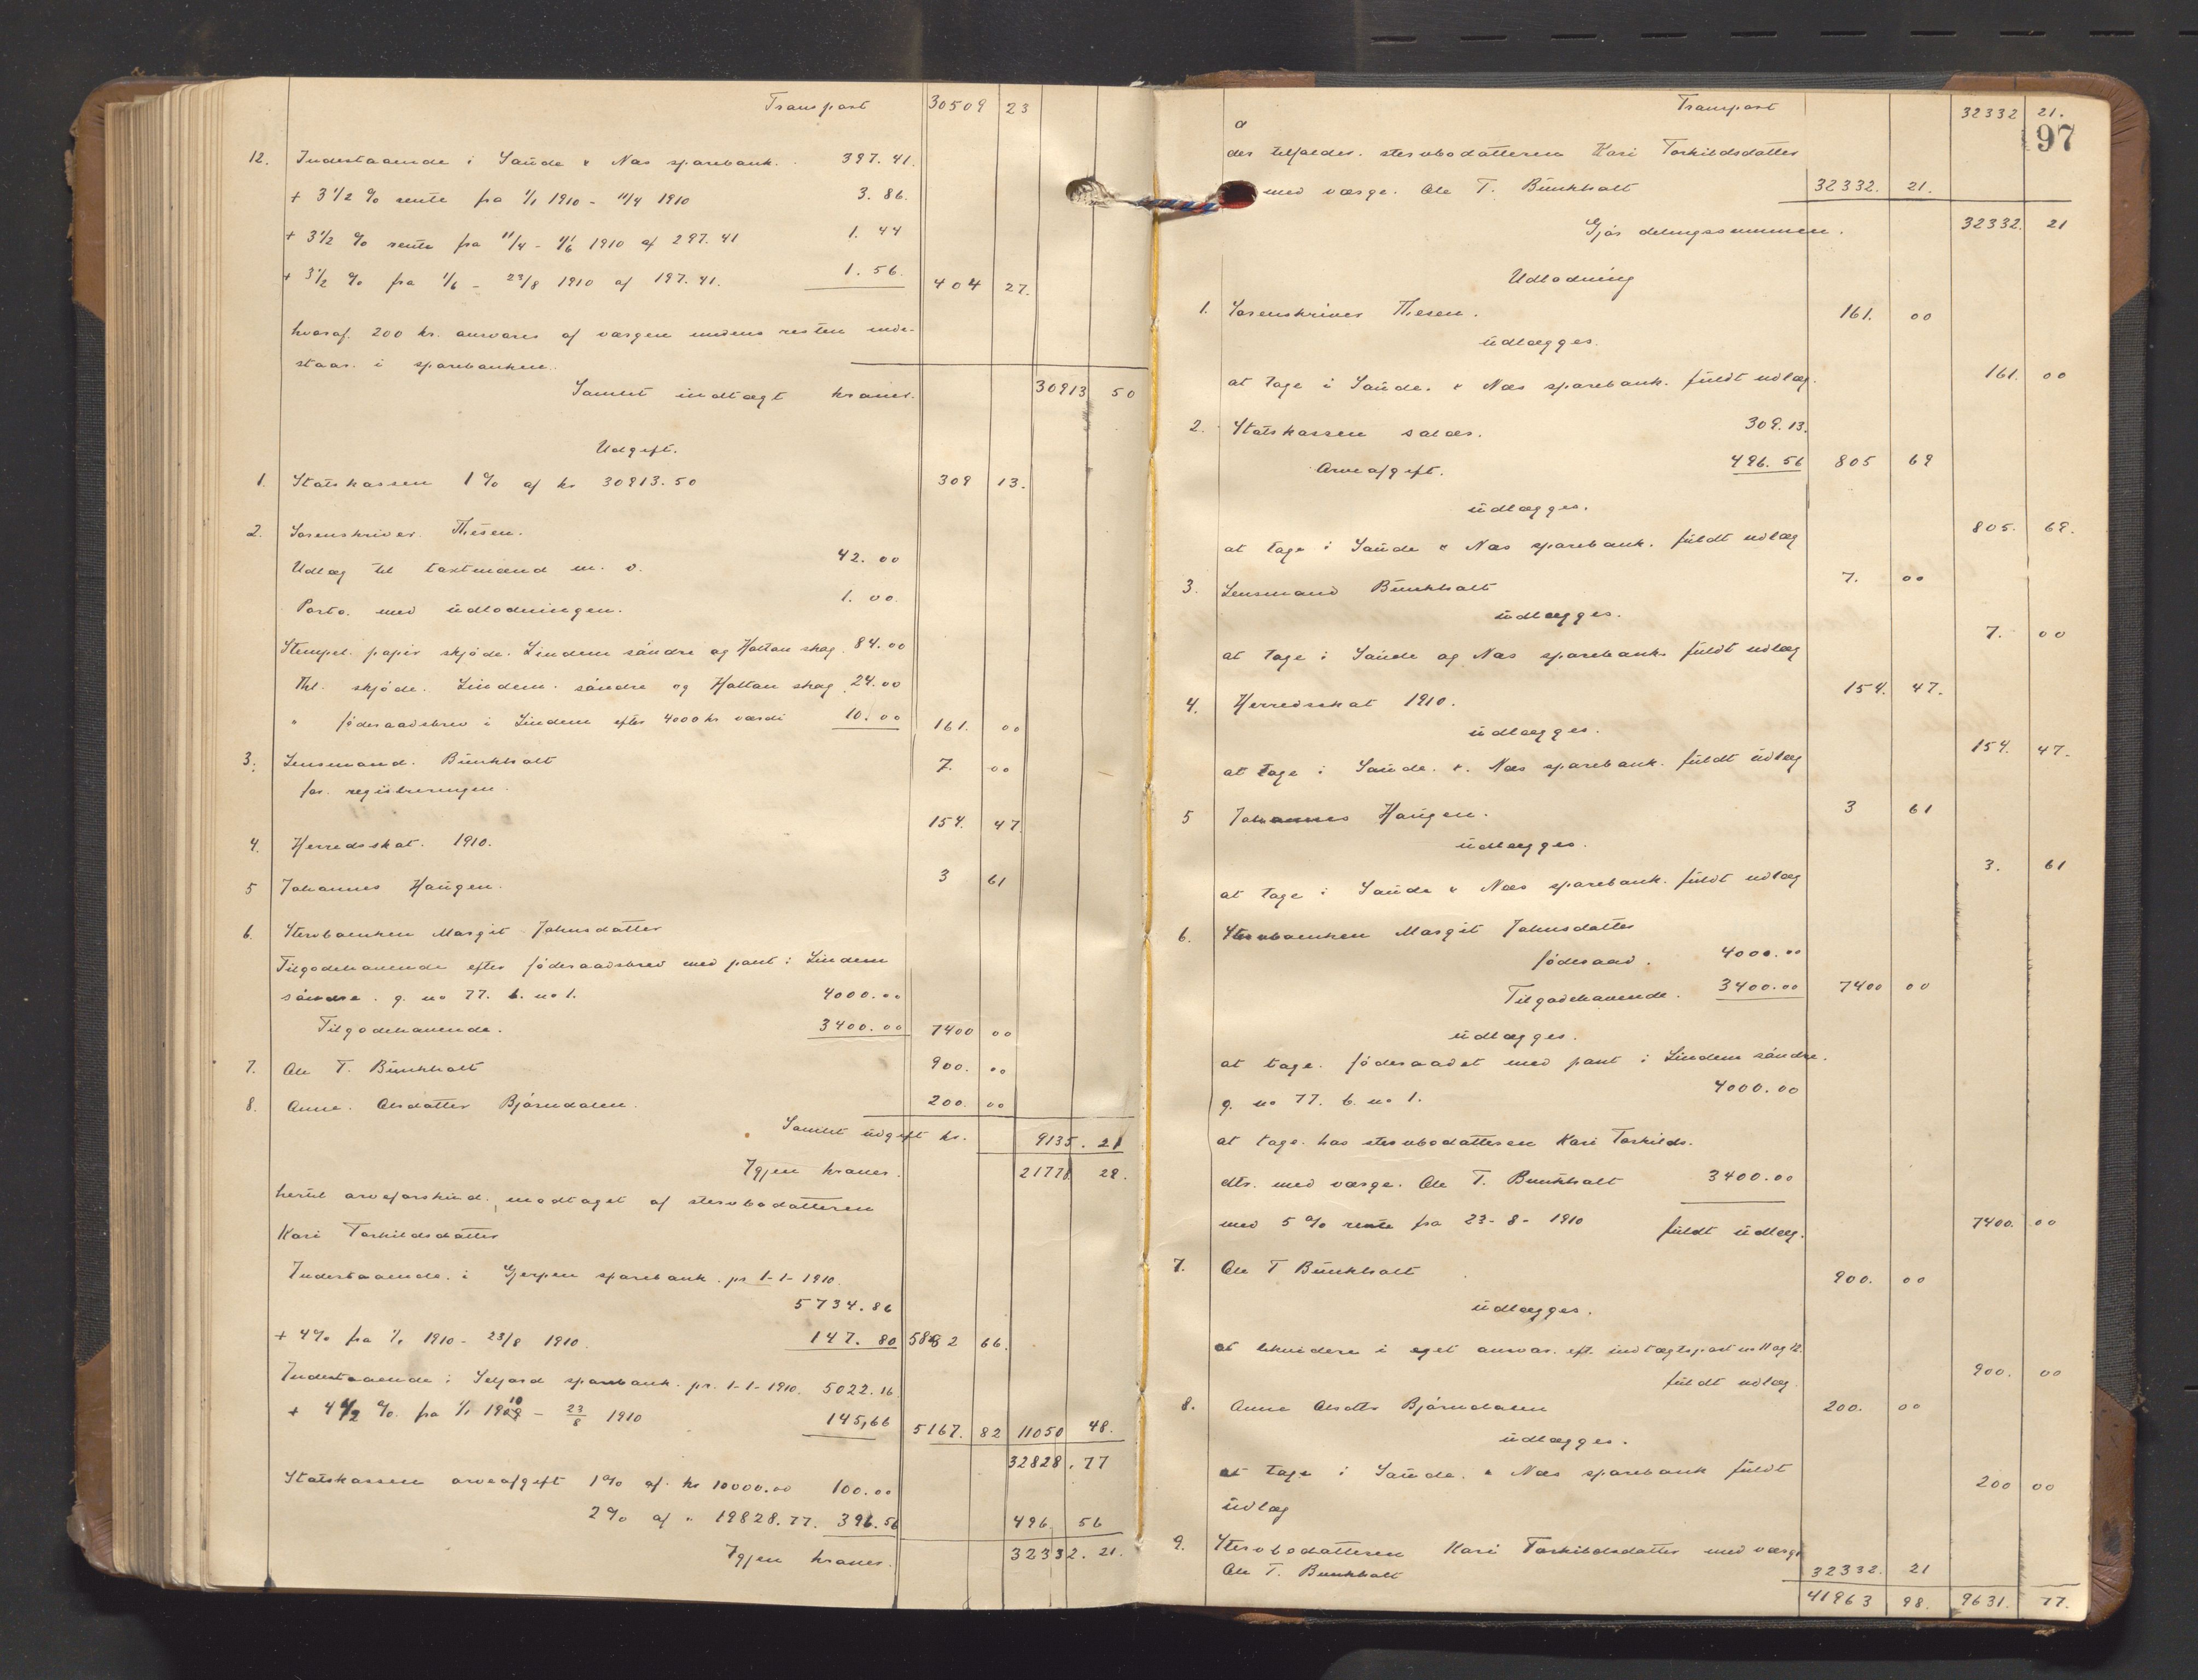 Transport 30509 23
12. Indestaaende i Saude & Nes sparebank. 397.41.
+ 3 1/2 % rente fra 1/1 1910 - 11/4 1910 3.86.
+ 3 1/2 % rente fra 11/4 - 1/6 1910 af 297.41 1.44
+ 3 1/2 % fra 1/6 - 23/8 1910 af 197.41. 1.56. 404 27.
hvoraf 200 kr. ansvares af værgen medens resten inde-
staar i sparebanken.
Samlet indtægt kroner. 30913 50
Udgift.
1. Statskassen 1% af kr 30913.50 309 13.
2. Sorenskriver Thesen.
Udlæg til taxtmænd m. v. 42.00
Porto med udlodningen. 1.00.
Stempel. papir skjøde. Lindem søndre og Holtan skog. 84.00
Thl. skjøde. Lindem. søndre og Holtan skog 24.00
" føderaadsbrev i Lindem efter 4000 kr værdi 10.00 161. 00
3. Lensmand. Bunkholt 7. 00
for registreringen.
4. Herredsskat. 1910. 154. 47.
5 Johannes Haugen. 3 61
6. Stervboenken Margit Johnsdatter
Tilgodehavende efter føderaadsbrev med pant i Lindem
søndre. g. no 77. b. no 1. 4000.00
Tilgodehavende. 3400.00 7400 00
7. Ole T. Bunkholt 900. 00
8. Anne. Olsdatter Bjørndalen. 200. 00
Samlet udgift kr. 9135. 21
Igjen kroner. 21778 29.
hertil arveforskud, modtaget af stervbodatteren
Kari Torkildsdatter
Indestaaende. i Gjerpen sparebank. pr 1-1-1910.
5734.86
+ 4% fra 1/1 1910 - 23/8 1910. 147.80 5882 66.
Indestaaende i Seljord sparebank. pr. 1-1-1910. 5022.16
+ 4 1/2 %. fra 1/1 1910 - 23/8 1910 145,66 5167. 82 11050 48.
32828. 77
Statskassen arveafgift 1% af. kr 10000.00 100.00
2% af " 19828.77. 396.56 496. 56
Igjen kroner. 32332. 21.
Transport 32332 21.
197
a
der tilfalder. stervbodatteren Kari Torkildsdatter
med værge. Ole T. Bunkholt 32332. 21.
Gjør delingssummen. 32332. 21
Udlodning
1. Sorenskriver Thesen. 161. 00
udlægges.
at tage i Saude. & Nes sparebank. fuldt udlæg. 161. 00
2. Statskassen salær. 309.13.
Arveafgift. 496.56 805 69
udlægges.
at tage i Saude & Nes sparebank. fuldt udlæg 805. 69.
3. Lensmand Bunkholt 7. 00
udlægges.
at tage i Saude og Nes sparebank fuldt udlæg 7. 00
4. Herredsskat 1910. 154. 47.
udlægges.
at tage i Saude. &. Nes sparebank. fuldt udlæg 154. 47.
5 Johannes Haugen. 3 61
udlægges.
at tage i Saude & Nes sparebank. fuldt udlæg 3. 61
6. Stervboenken Margit Johnsdatter
føderaad. 4000.00
Tilgodehavende. 3400.00 7400 00
udlægges.
at tage. føderaadet med pant i Lindem søndre.
g. no 77. b. no 1. 4000.00
at tage. hos stervbodatteren Kari Torkilds.
dtr. med værge. Ole T. Bunkholt 3400.00
med 5% rente fra 23-8-1910 fuldt udlæg. 7400. 00
7. Ole T Bunkholt 900. 00
udlægges.
at likvidere i eget ansvar. eft. indtægtspost no 11 og 12.
fuldt udlæg. 900. 00
8. Anne Olsdtr Bjørndalen 200. 00
udlægges.
at tage i Saude. & Nes sparebank fuldt
udlæg 200 00
9. Stervbodatteren Kari Torkildsdatter med værge
Ole T. Bunkholt 32332. 21
41963 98. 9631. 77.